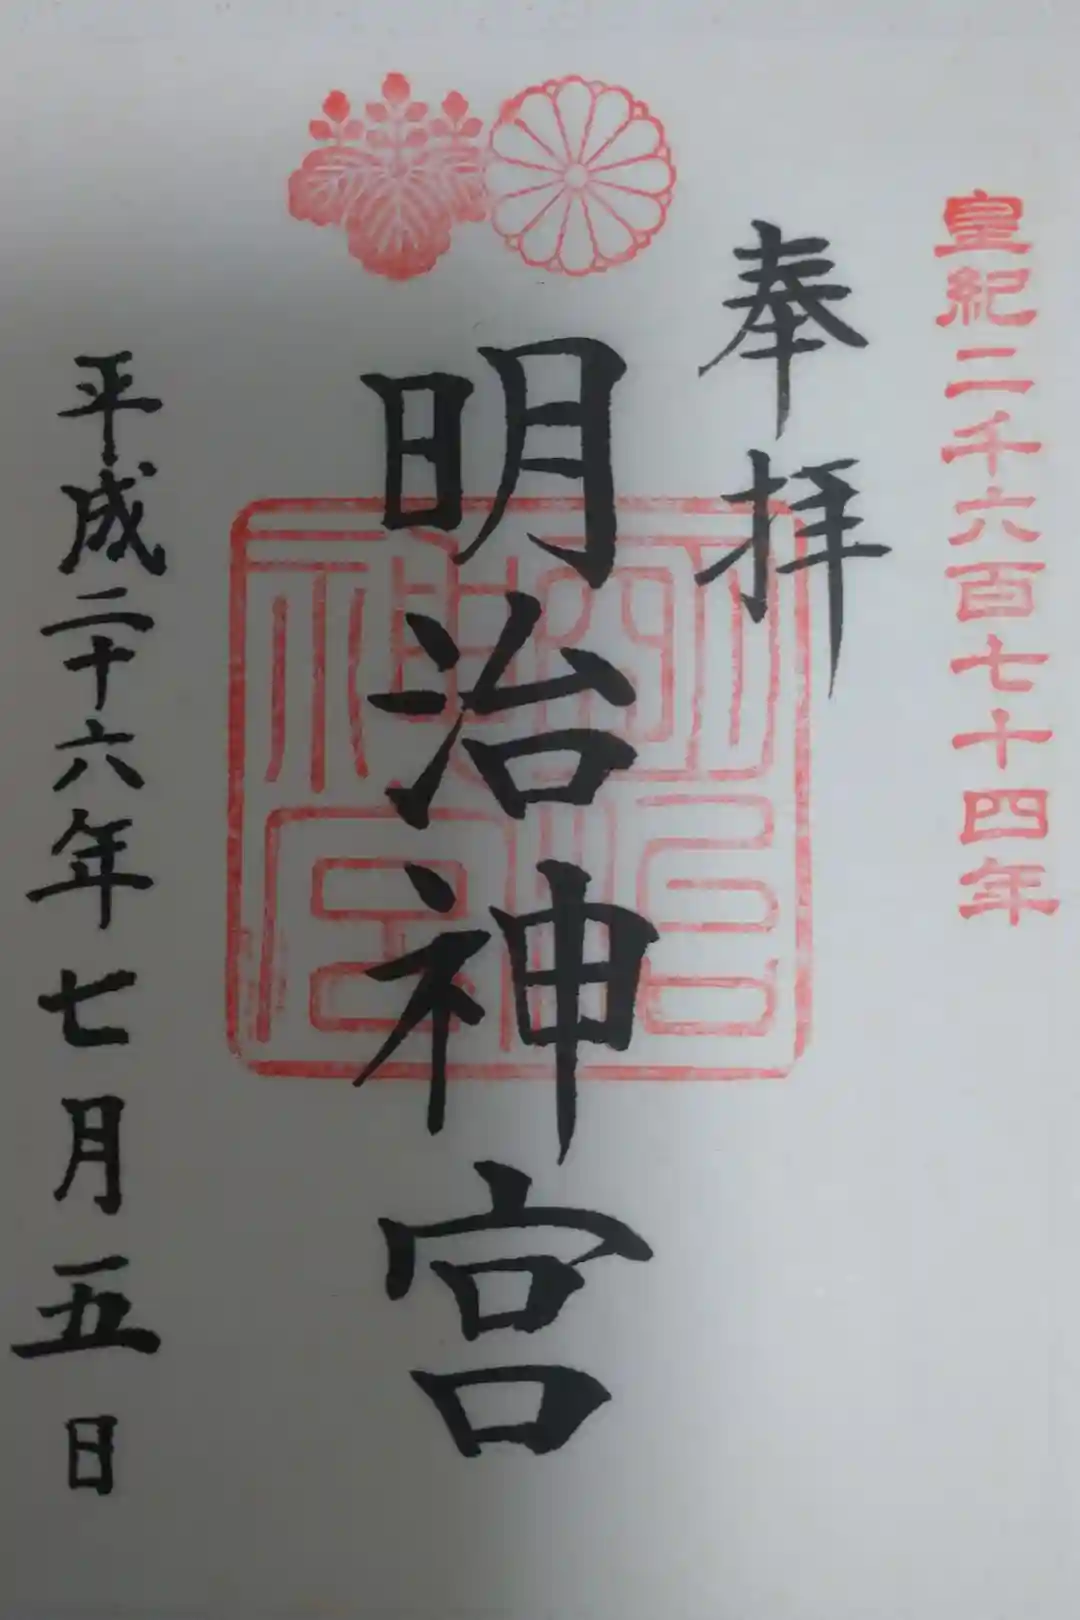 皇紀二千六百七十四年
奉拝
明治神宮
明治神宮
平成二十六年七月五日